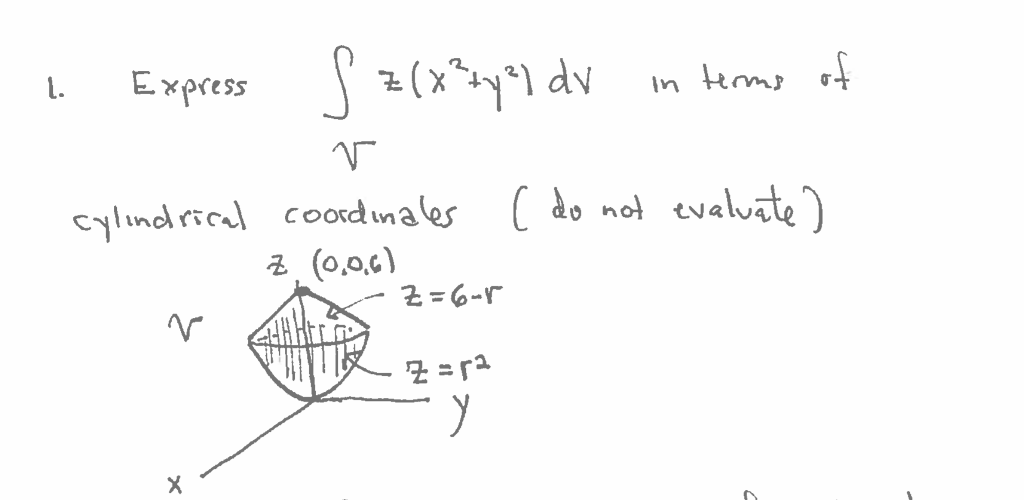 1. Express ∫ z(x²+y²) dV in terms of
V
cylindrical coordinates (do not evaluate)
z (0,0,6)
z=6-r
V
z=r²
y
x